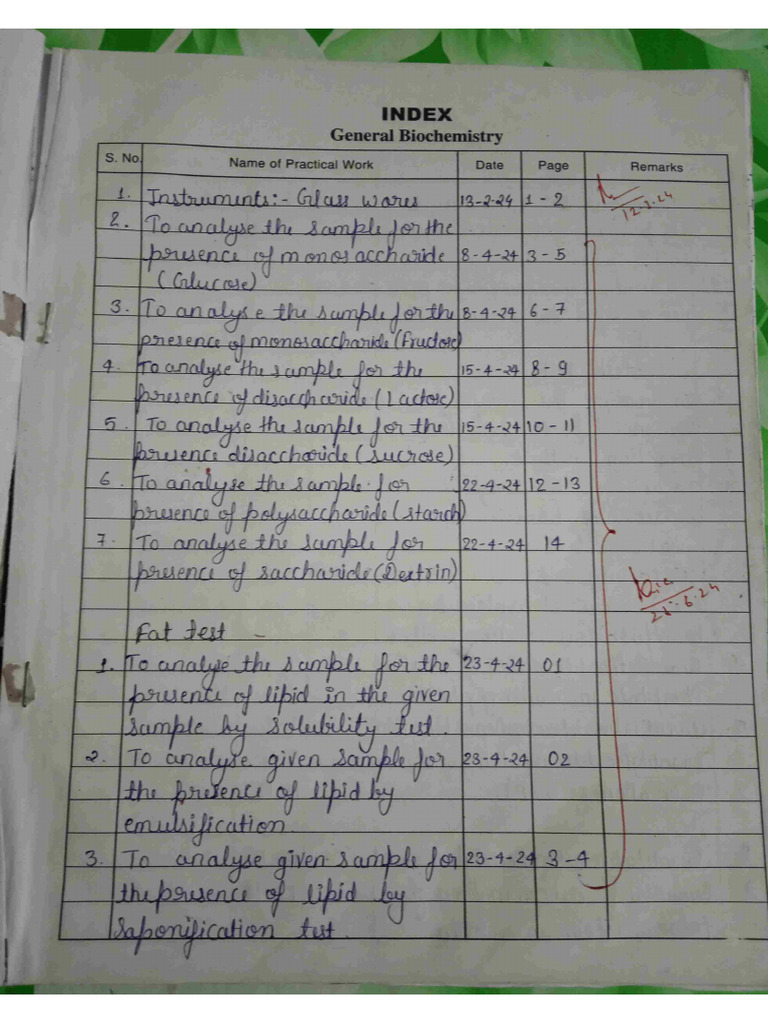 INDEX
General Biochemistry
S. No. Name of Practical Work Date Page Remarks
1. Instruments:- Glass wares 13-2-24 1 - 2
12.3.24
2. To analyse the sample for the
presence of monosaccharide 8-4-24 3 - 5
(Glucose)
3. To analyse the sample for the 8-4-24 6 - 7
presence of monosaccharide (Fructose)
4. To analyse the sample for the 15-4-24 8 - 9
presence of disaccharide (Lactose)
5. To analyse the sample for the 15-4-24 10 - 11
presence disaccharide (sucrose)
6. To analyse the sample for 22-4-24 12 - 13
presence of polysaccharide (starch)
7. To analyse the sample for 22-4-24 14
presence of saccharide (Dextrin)
Fat test -
1. To analyse the sample for the 23-4-24 01
presence of lipid in the given
sample by solubility test.
2. To analyse given sample for 23-4-24 02
the presence of lipid by
emulsification.
3. To analyse given sample for 23-4-24 3 - 4
the presence of lipid by
saponification test.